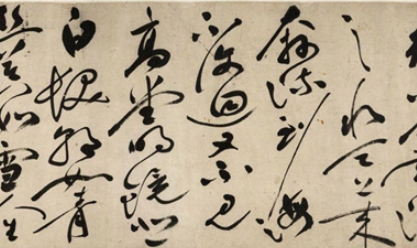 之水天上来
奔流到海
不復迴又不見
高堂明鏡悲
白髮朝如青
絲暮如雪